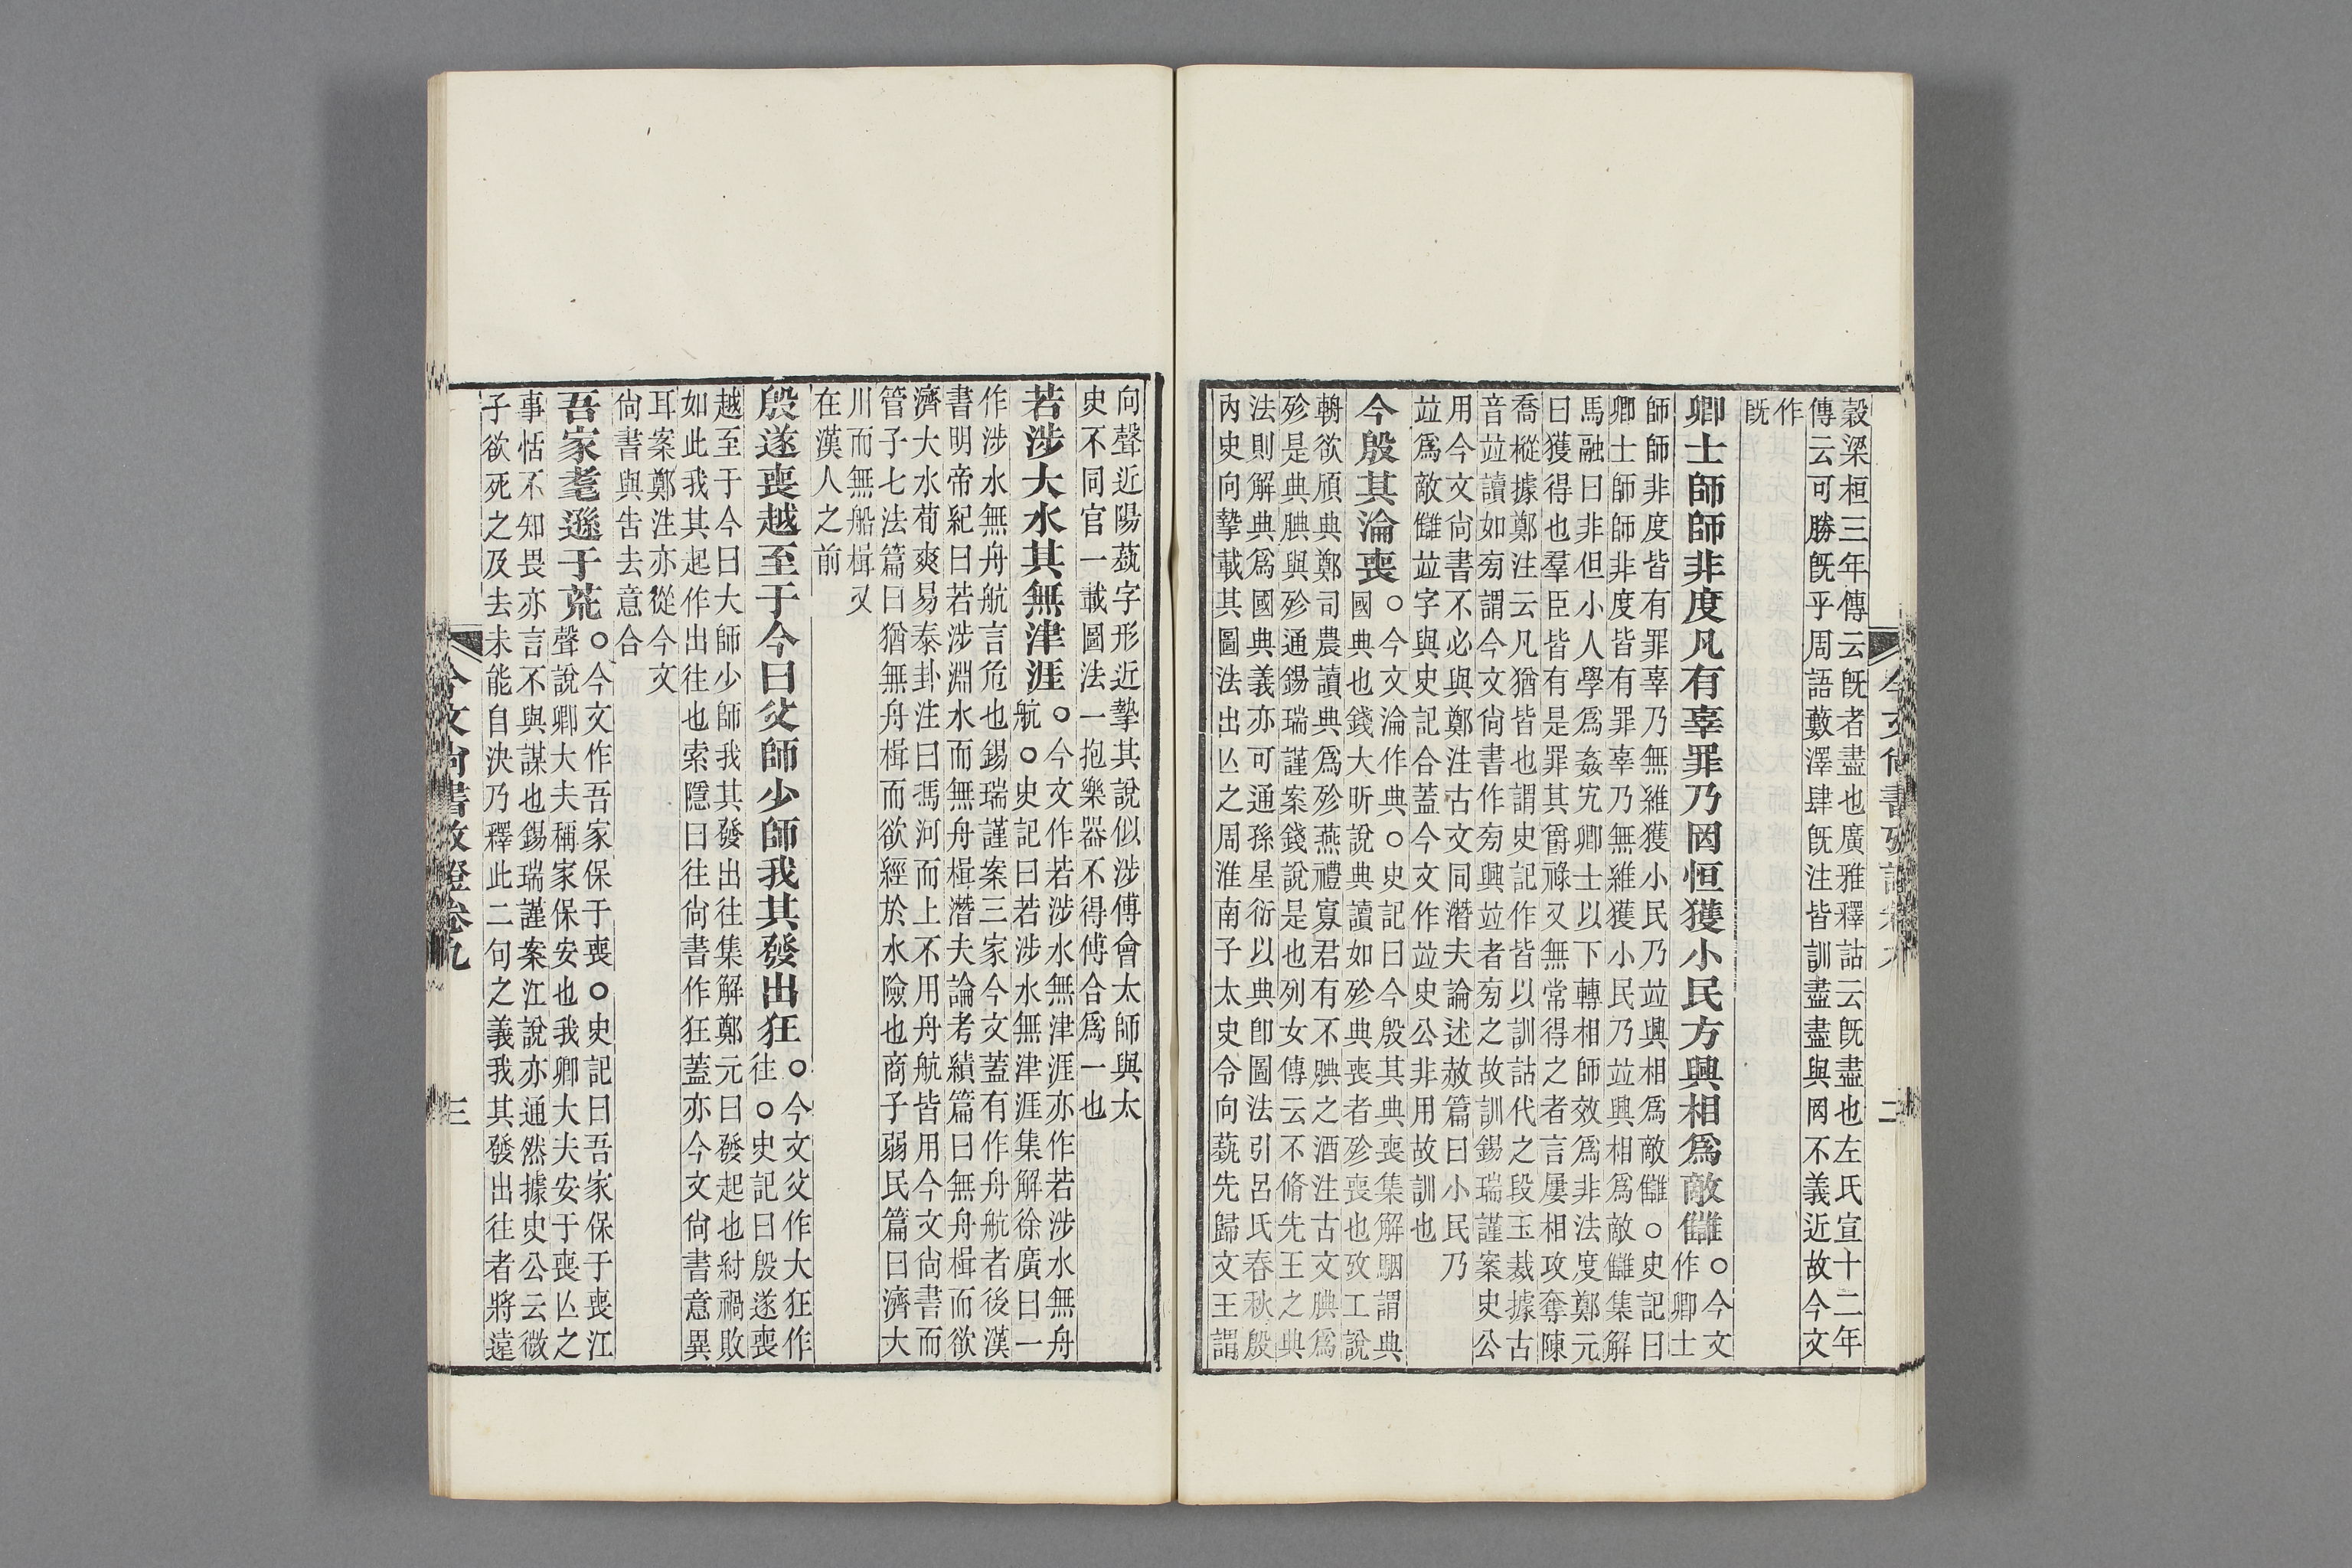 穀梁桓三年傳云旣者盡也廣雅釋詁云旣盡也左氏宣十二年
傳云可勝旣乎周語藪澤肆旣注皆訓盡盡與罔不義近故今文
作
旣
卿士師師非度凡有辜罪乃罔恒獲小民方興相爲敵讎○今文
作卿士
師師非度皆有罪辜乃無維獲小民乃竝興相爲敵讎○史記曰
卿士師師非度皆有罪辜乃無維獲小民乃竝興相爲敵讎集解
馬融曰非但小人學爲姦宄卿士以下轉相師效爲非法度鄭元
曰獲得也羣臣皆有是罪其爵祿又無常得之者言屢相攻奪陳
喬樅據鄭注云凡猶皆也謂史記作皆以訓詁代之段玉裁據古
音竝讀如旁謂今文尚書作旁興竝者旁之故訓錫瑞謹案史公
用今文尚書不必與鄭注古文同潛夫論述赦篇曰小民乃
竝爲敵讎竝字與史記合蓋今文作竝史公非用故訓也
今殷其淪喪○今文淪作典○史記曰今殷其典喪集解駰謂典
國典也錢大昕說典讀如殄典喪者殄喪也攷工說
輈欲頎典鄭司農讀典爲殄燕禮寡君有不腆之酒注古文腆爲
殄是典腆與殄通錫瑞謹案錢說是也列女傳云不脩先王之典
法則解典爲國典義亦可通孫星衍以典卽圖法引呂氏春秋殷
內史向摯載其圖法出亾之周淮南子太史令向蓺先歸文王謂
今文尚書攷證卷九 二
向聲近陽蓺字形近摯其說似涉傅會太師與太
史不同官一載圖法一抱樂器不得傅合爲一也
若涉大水其無津涯○今文作若涉水無津涯亦作若涉水無舟
航○史記曰若涉水無津涯集解徐廣曰一
作涉水無舟航言危也錫瑞謹案三家今文蓋有作舟航者後漢
書明帝紀曰若涉淵水而無舟楫潛夫論考績篇曰無舟楫而欲
濟大水荀爽易泰卦注曰馮河而上不用舟航皆用今文尚書而
管子七法篇曰猶無舟楫而欲經於水險也商子弱民篇曰濟大
川而無船楫又
在漢人之前
殷遂喪越至于今曰父師少師我其發出狂○今文父作大狂作
往○史記曰殷遂喪
越至于今曰大師少師我其發出往集解鄭元曰發起也紂禍敗
如此我其起作出往也索隱曰往尚書作狂蓋亦今文尚書意異
耳案鄭注亦從今文
尚書與吿去意合
吾家耄遜于荒○今文作吾家保于喪○史記曰吾家保于喪江
聲說卿大夫稱家保安也我卿大夫安于喪亾之
事恬不知畏亦言不與謀也錫瑞謹案江說亦通然據史公云微
子欲死之及去未能自決乃釋此二句之義我其發出往者將遠
今文尚書攷證卷九 三